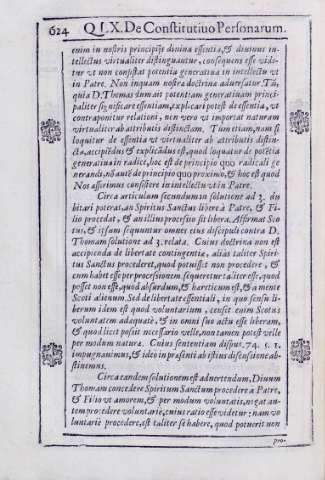 624 Q I. X. De Constitutiuo Personarum.
enim in nostris principijs diuina essentia, & diuinus in-
tellectus virtualiter distinguantur, consequens esse vide-
tur vt non consistat potentia generatiua in intellectu vt
in Patre. Non inquam nostra doctrina aduersatur. Tũ,
quia D. Thomas dum ait potentiam generatiuam princi-
paliter significare essentiam, explicari potest de essentia, vt
contraponitur relationi, non vero vt importat naturam
virtualiter ab attributis distinctam. Tum etiam, nam si
loquitur de essentia vt virtualiter ab attributis distin-
cta, accipiẽdus & explicãdus est, quod loquatur de potẽtia
generatiua in radice, hoc est de principio quo radicali ge
nerandi, nõ autẽ de principio quo proximo, & hoc est quod
Nos asserimus consistere in intellectu vt in Patre.
Circa articulum secundum in solutione ad 3. du
bitari poterat, an Spiritus Sanctus liberè à Patre, & Fi-
lio procedat, & an illius processio sit libera. Affirmat Sco
tus, & ipsum sequuntur omnes eius discipuli contra D.
Thomam solutione ad 3. relata. Cuius doctrina non est
accipienda de libertate contingentiæ, aliàs taliter Spiri-
tus Sanctus procederet, quod potuisset non procedere, &
cum habet esse per processionem sequeretur taliter esse, quod
posset non esse, quod absurdum, & hæreticum est, & a mente
Scoti alienum. Sed de libertate essentiali, in quo sensu li-
berum idem est quod voluntarium, censet enim Scotus
voluntatem adæquatè, & in omni suo actu esse liberam,
& quod licet possit necessario velle, non tamen potest velle
per modum naturæ. Cuius sententiam disput. 74. §. 1.
impugnauimus, & ideo in præsenti ab istius discussione ab-
stinemus.
Circa eandem solutionem est aduertendum, Diuum
Thomam concedere Spiritum Sanctum procedere a Patre,
& Filio vt amorem, & per modum voluntatis, negat au-
tem procedere voluntariè, cuius ratio esse videtur: nam vo
luntariè procedere, est taliter se habere, quod potuerit non
pro-